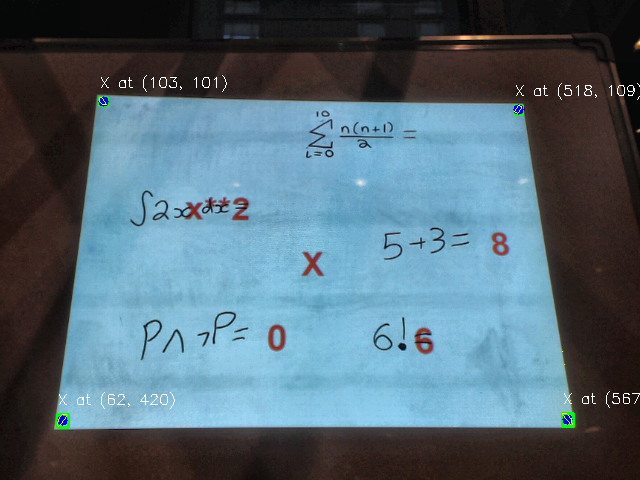 X at (103, 101)
X at (518, 109)
10
∑ n(n+1)/2 =
i=0
∫2x dx =
x**2
5+3= 8
X
P∧¬P= 0
6!=
6
X at (62, 420)
X at (567